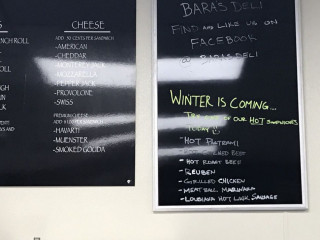 CHEESE
ADD 50 CENTS PER SANDWICH
-AMERICAN
-CHEDDAR
-MONTEREY JACK
-MOZZARELLA
-PEPPER JACK
-PROVOLONE
-SWISS
PREMIUM CHEESE
-HAVARTI
-MUENSTER
-SMOKED GOUDA
NCH ROLL
BARAS DELI
FIND and LIKE US ON
FACEBOOK
@ BARAS DELI
WINTER IS COMING...
OUR HOT SANDWICHES
TODAY
- HOT PASTRAMI
BEEF
- HOT ROAST BEEF
- REUBEN
- GRILLED CHICKEN
- MEATBALL MARINARA
- LOUISIANA HOT LINK SAUSAGE